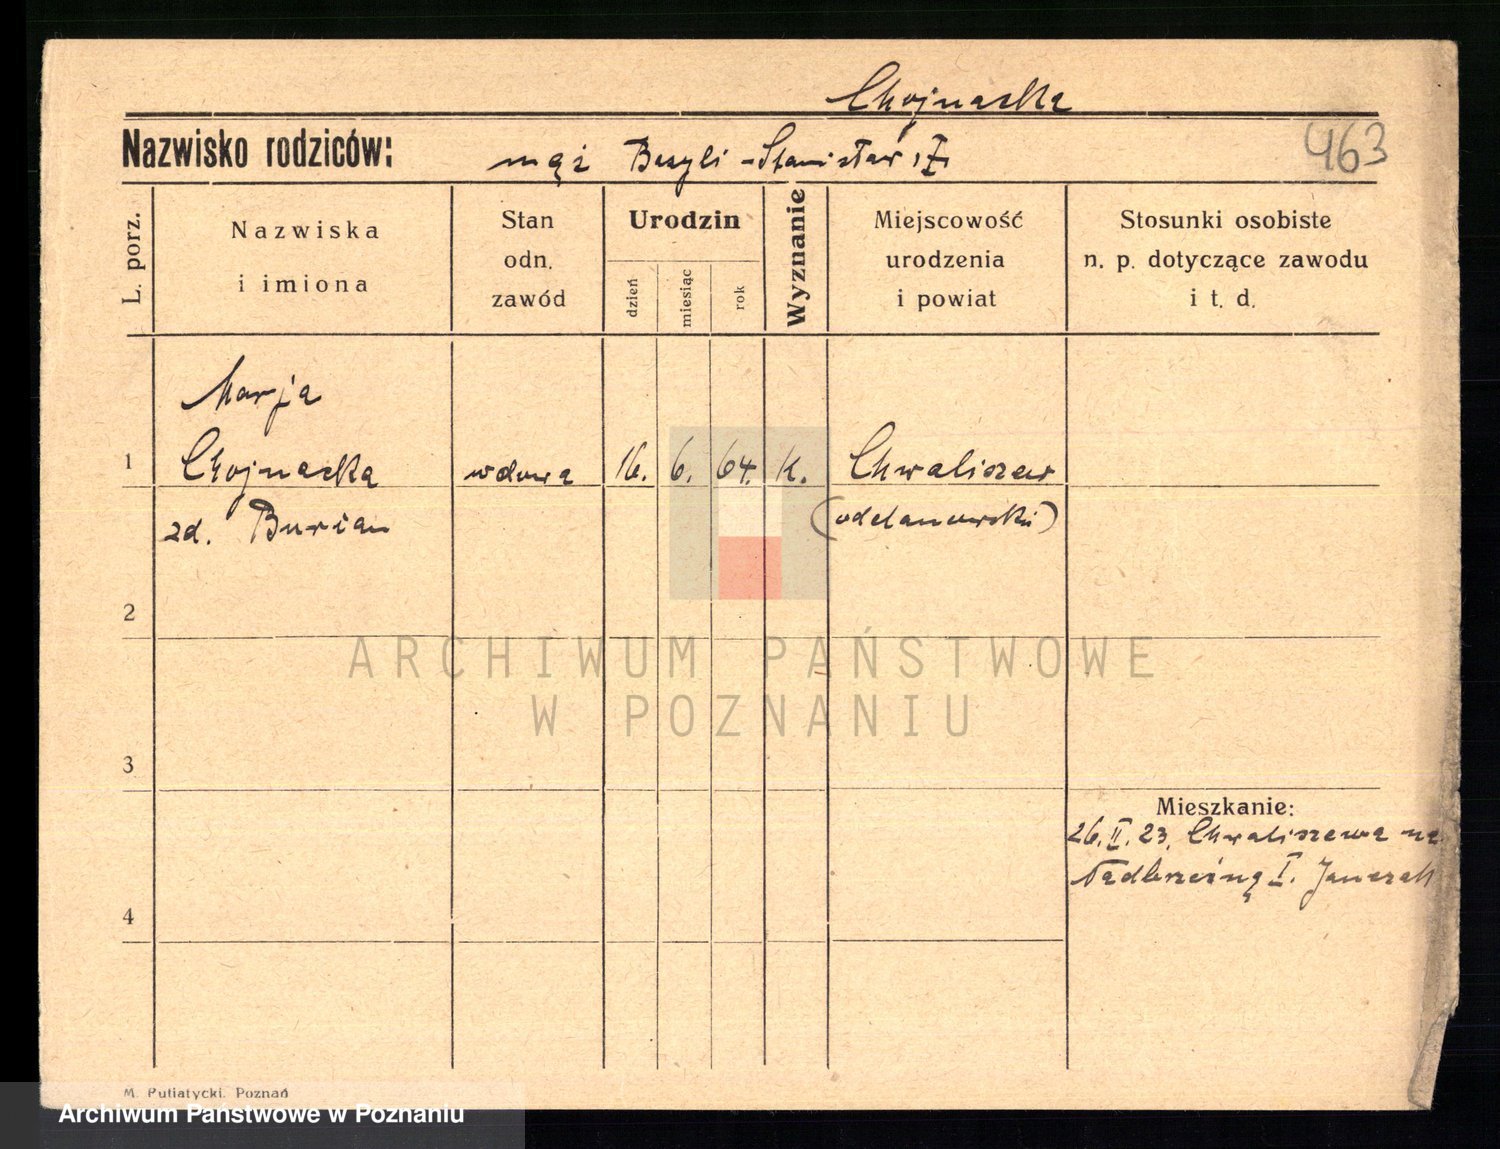 Chojnacka
Nazwisko rodziców: mąż Bazyli - Stanisław, Ż.
463
L. porz.
Nazwiska
i imiona
Stan
odn.
zawód
Urodzin
dzień
miesiąc
rok
Wyznanie
Miejscowość
urodzenia
i powiat
Stosunki osobiste
n. p. dotyczące zawodu
i t. d.
Marja
1 Chojnacka wdowa 16. 6. 64. K. Chwaliszew
zd. Burian (odolanowski)
2
ARCHIWUM PAŃSTWOWE
W POZNANIU
3
Mieszkanie:
26. II. 23. Chwaliszewa na
I. Janczak
4
M. Putiatycki. Poznań
Archiwum Państwowe w Poznaniu